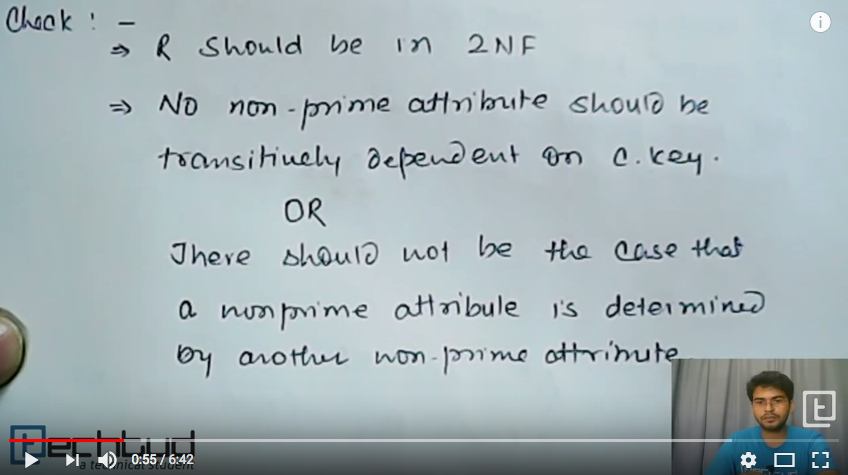 Check : -
⇒ R should be in 2NF
⇒ No non-prime attribute should be
transitively dependent on C. key.
OR
There should not be the case that
a nonprime attribute is determined
by another non-prime attribute
techtud
a technical student
0:55 / 6:42